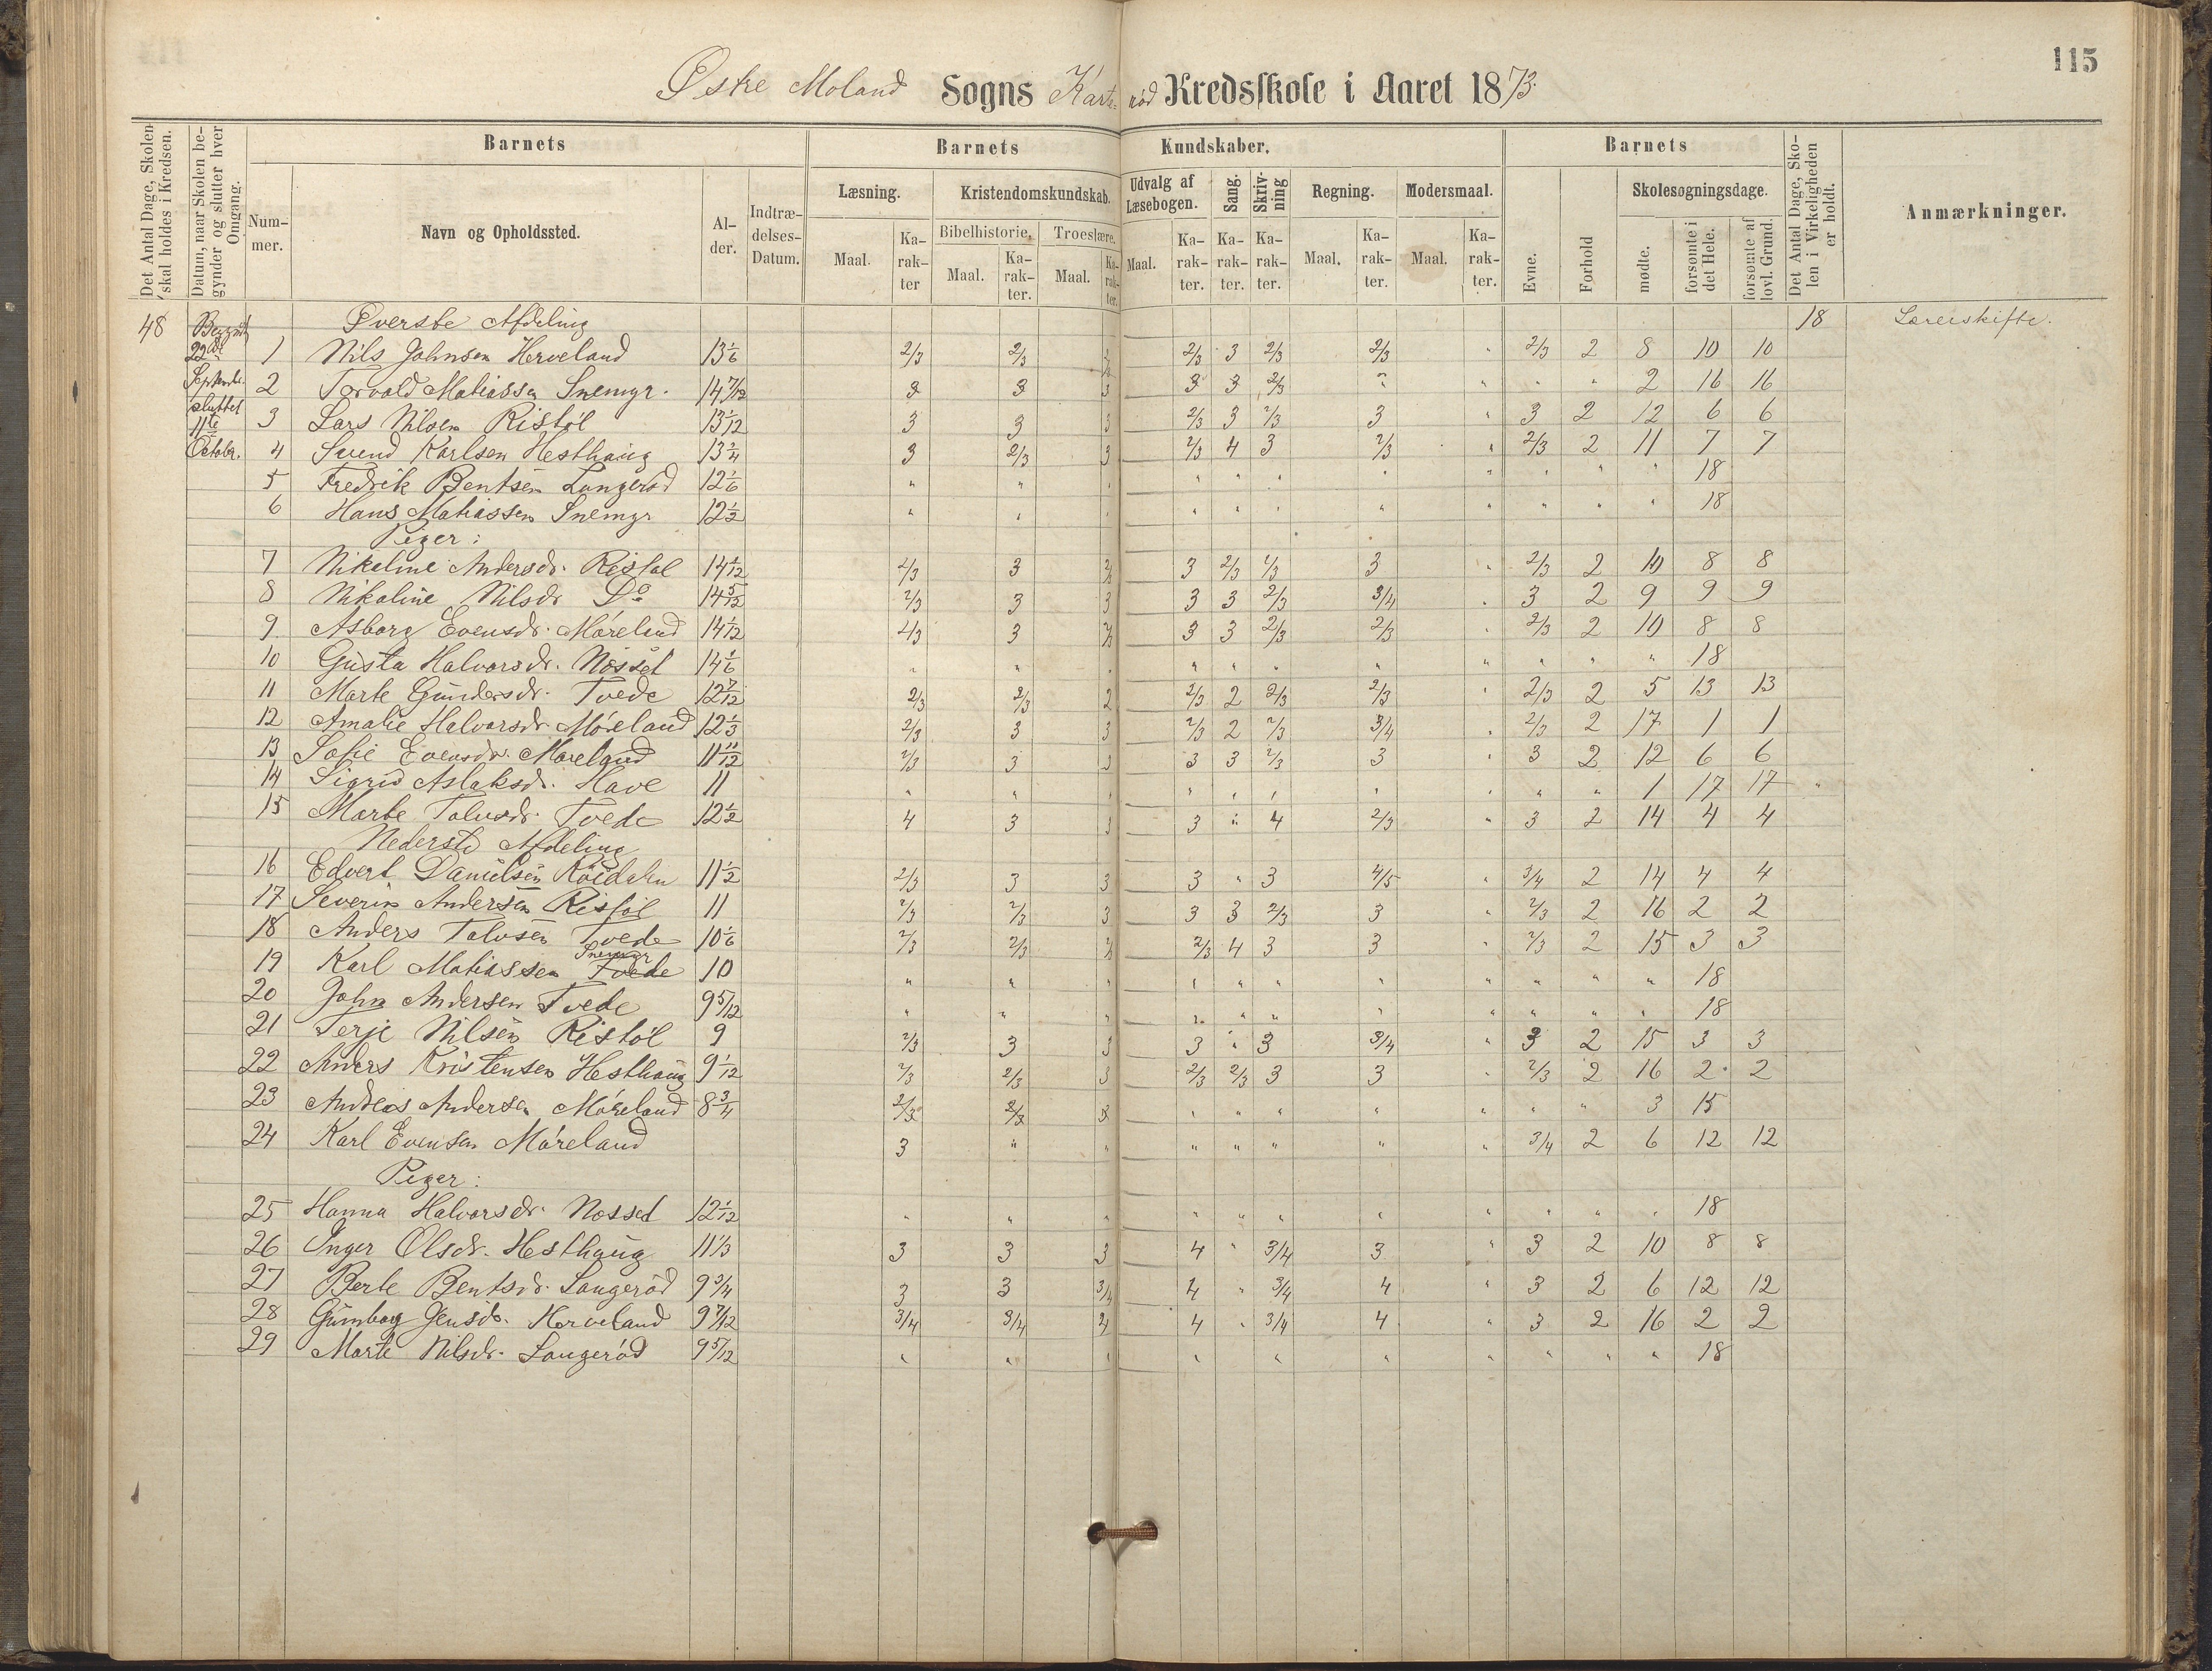 115
Østre Moland Sogns Kartrød Kredsskole i Aaret 1873.
Det Antal Dage, Skolen skal holdes i Kredsen.
Datum, naar Skolen begynder og slutter hver Omgang.
Barnets
Nummer.
Navn og Opholdssted.
Alder.
Indtrædelses-Datum.
Barnets Kundskaber.
Læsning.
Maal.
Karakter
Kristendomskundskab.
Bibelhistorie.
Maal.
Karakter.
Troeslære.
Maal.
Karakter.
Udvalg af Læsebogen.
Maal.
Karakter.
Sang.
Karakter.
Skrivning
Karakter.
Regning.
Maal.
Karakter.
Modersmaal.
Maal.
Karakter.
Barnets
Evne.
Forhold
Skolesøgningsdage.
mødte.
forsømte i det Hele.
forsømte af lovl. Grund.
Det Antal Dage, Skolen i Virkeligheden er holdt.
Anmærkninger.
48 Øverste Afdeling 18 Lærerskifte.
22de
Septembr.
sluttet
11te
Octobr.
1 Nils Johnsen Herveland 13 1/6 2/3 2/3 2/3 2/3 3 2/3 2/3 " 2/3 2 8 10 10
2 Torvald Matiassen Snemyr. 14 7/12 3 3 3 3 3 2/3 " " " " 2 16 16
3 Lars Nilsen Ristøl 13 1/12 3 3 3 2/3 3 2/3 3 " 3 2 12 6 6
4 Svend Karlsen Hesthaug 13 1/4 3 2/3 3 2/3 4 3 2/3 " 2/3 2 11 7 7
5 Fredrik Bentsen Langerød 12 1/6 " " " " " " " " " " " 18
6 Hans Matiassen Snemyr 12 1/2 " " " " " " " " " " " 18
Piger:
7 Nikoline Andersdr. Ristøl 14 1/12 2/3 3 2/3 3 2/3 2/3 3 " 2/3 2 10 8 8
8 Nikoline Nilsdr Do 14 5/12 2/3 3 3 3 3 2/3 3/4 " 3 2 9 9 9
9 Asborg Evensdr. Møreland 14 1/12 2/3 3 2/3 3 3 2/3 2/3 " 2/3 2 10 8 8
10 Gusta Halvorsdr. Nøssed 14 1/6 " " " " " " " " " " " 18
11 Marte Gundersdr. Tvede 12 7/12 2/3 2/3 2 2/3 2 2/3 2/3 " 2/3 2 5 13 13
12 Amalie Halvorsdr. Møreland 12 1/3 2/3 3 3 2/3 2 2/3 3/4 " 2/3 2 17 1 1
13 Sofie Evensdr. Møreland 11 11/12 2/3 3 3 3 3 2/3 3 " 3 2 12 6 6
14 Sigrid Aslaksdr. Have 11 " " " " " " " " " " 1 17 17 "
15 Marte Tolvsdr. Tvede 12 1/2 4 3 3 3 " 4 2/3 " 3 2 14 4 4
Nederste Afdeling
16 Edvert Danielsen Røedalen 11 1/2 2/3 3 3 3 " 3 4/5 " 3/4 2 14 4 4
17 Severin Andersen Ristøl 11 2/3 2/3 3 3 3 2/3 3 " 2/3 2 16 2 2
18 Anders Tolvsen Tvede 10 1/6 2/3 2/3 2/3 2/3 4 3 3 " 2/3 2 15 3 3
19 Karl Matiassen Tvede Snemyr 10 " " " " " " " " " " " 18
20 John Andersen Tvede 9 5/12 " " " " " " " " " " " 18
21 Terje Nilsen Ristøl 9 2/3 3 3 3 " 3 3/4 " 3 2 15 3 3
22 Anders Kristensen Hesthaug 9 1/12 2/3 2/3 3 2/3 2/3 3 3 " 2/3 2 16 2 2
23 Andreas Andersen Møreland 8 3/4 2/3 2/3 3 " " " " " " " 3 15
24 Karl Evensen Møreland 3 " " " " " " " 3/4 2 6 12 12
Piger:
25 Hanna Halvorsdr. Nøssed 12 1/12 " " " " " " " " " " " 18
26 Inger Olsdr. Hesthaug 11 1/3 3 3 3 4 " 3/4 3 " 3 2 10 8 8
27 Berte Bentsdr. Langerød 9 3/4 3 3 3/4 4 " 3/4 4 " 3 2 6 12 12
28 Gumborg Jensdr. Herveland 9 7/12 3/4 3/4 4 " 3/4 4 " 3 2 16 2 2
29 Marte Nilsdr. Langerød 9 5/12 " " " " " " " " " " 18